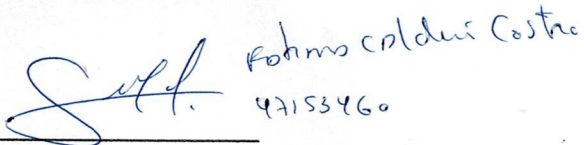 Fatima Calderi Castro
47153460